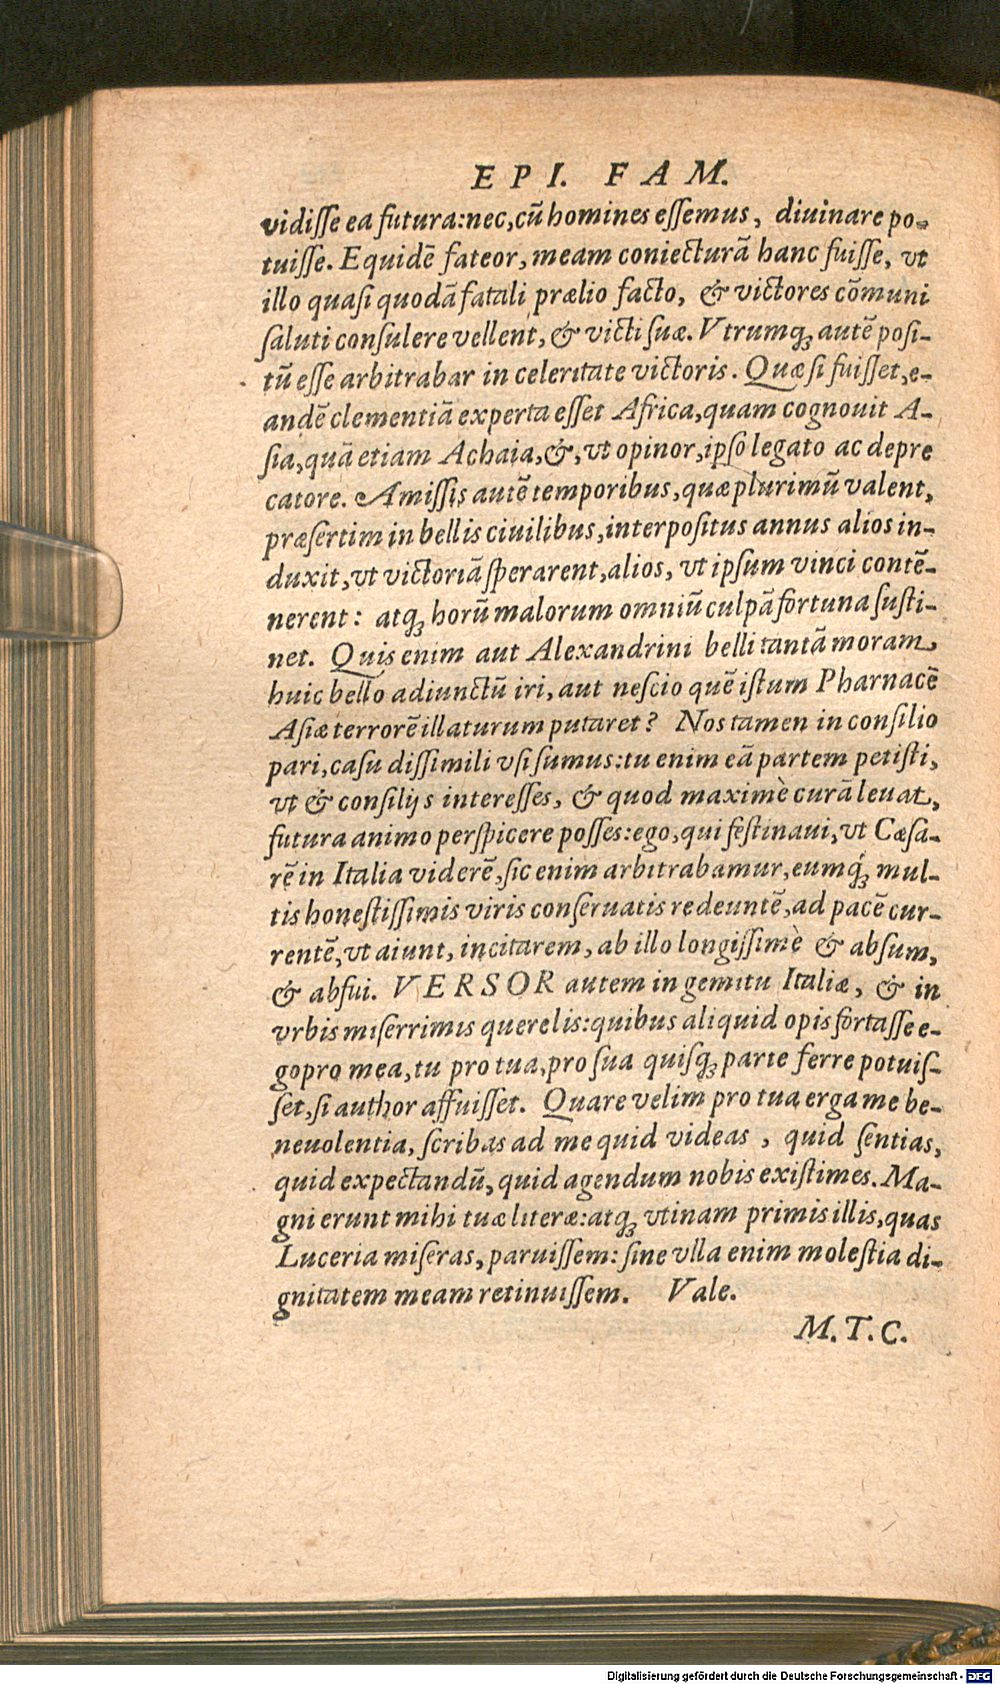 EPI. FAM.
vidiſſe ea futura:nec,cũ homines eſſemus, diuinare po-
tuiſſe. Equidẽ fateor, meam coniecturã hanc fuiſſe, vt
illo quaſi quodã fatali prælio facto, & victores cõmuni
ſaluti conſulere vellent, & victi ſuæ. Vtrumq; autẽ poſi-
tũ eſſe arbitrabar in celeritate victoris. Quæ ſi fuiſſet, e-
andẽ clementiã experta eſſet Africa, quam cognouit A-
ſia, quã etiam Achaia, &, vt opinor, ipſo legato ac depre
catore. Amiſſis autẽ temporibus, quæ plurimũ valent,
præſertim in bellis ciuilibus, interpoſitus annus alios in-
duxit, vt victoriã ſperarent, alios, vt ipſum vinci contẽ-
nerent: atq; horũ malorum omniũ culpã fortuna ſuſti-
net. Quis enim aut Alexandrini belli tantã moram
huic bello adiunctũ iri, aut neſcio quẽ iſtum Pharnacẽ
Aſiæ terrorẽ illaturum putaret? Nos tamen in conſilio
pari, caſu diſſimili vſi ſumus: tu enim eã partem petiſti,
vt & conſilijs intereſſes, & quod maximè curã leuat,
futura animo perſpicere poſſes: ego, qui feſtinaui, vt Cæſa-
rẽ in Italia viderẽ, ſic enim arbitrabamur, eumq́; mul-
tis honeſtiſſimis viris conſeruatis redeuntẽ, ad pacẽ cur-
rentẽ, vt aiunt, incitarem, ab illo longiſſimè & abſum,
& abfui. VERSOR autem in gemitu Italiæ, & in
vrbis miſerrimis querelis: quibus aliquid opis fortaſſe e-
go pro mea, tu pro tua, pro ſua quiſq; parte ferre potuiſ-
ſet, ſi author affuiſſet. Quare velim pro tua erga me be-
neuolentia, ſcribas ad me quid videas, quid ſentias,
quid expectandũ, quid agendum nobis exiſtimes. Ma-
gni erunt mihi tuæ literæ: atq; vtinam primis illis, quas
Luceria miſeras, paruiſſem: ſine vlla enim moleſtia di-
gnitatem meam retinuiſſem. Vale.
M. T. C.
Digitalisierung gefördert durch die Deutsche Forschungsgemeinschaft - DFG